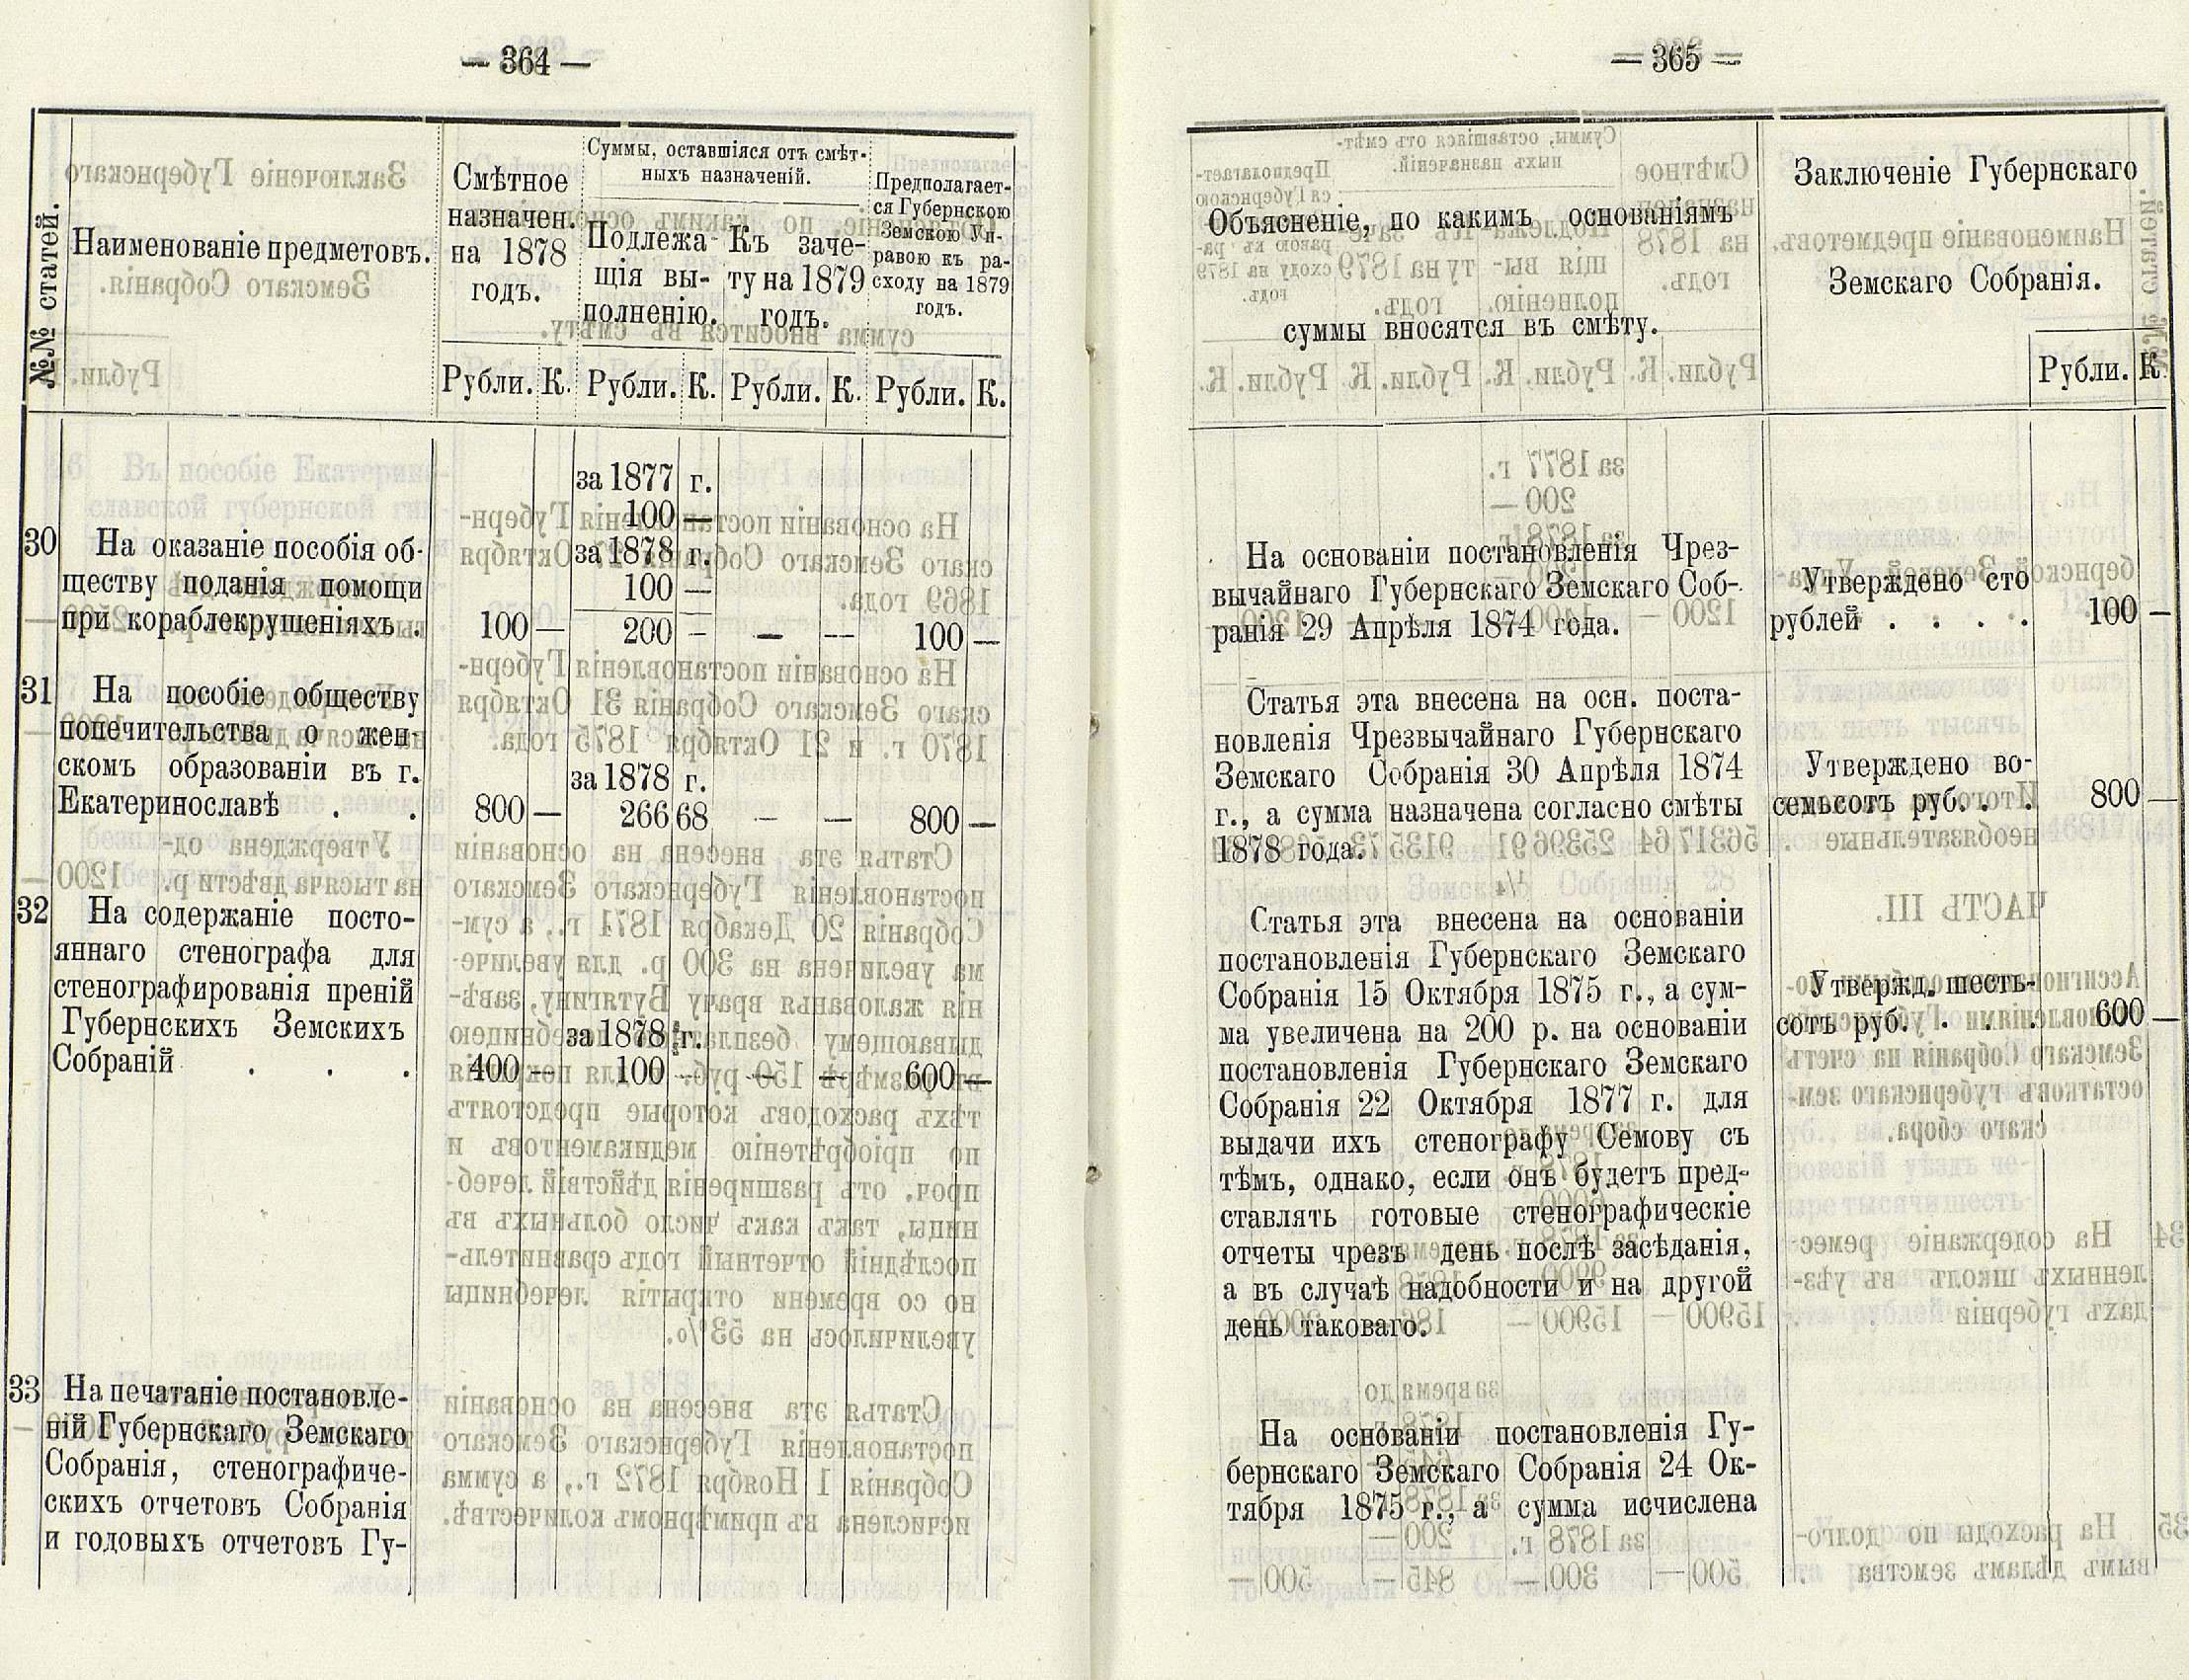 — 364 —
№№ статей.
Наименованіе предметовъ.
Смѣтное
назначен.
на 1878
годъ.
Суммы, оставшіяся отъ смѣт-
ныхъ назначеній.
Подлежа-
щія вы-
полненію.
Къ заче-
ту на 1879
годъ.
Предполагает-
ся Губернскою
Земскою Уп-
равою къ ра-
сходу на 1879
годъ.
Рубли. К. Рубли. К. Рубли. К. Рубли. К.
за 1877 г.
100 —
30 На оказаніе пособія об- за 1878 г.
ществу поданія помощи 100 —
при кораблекрушеніяхъ . 100 — 200 — — — 100 —
31 На пособіе обществу
попечительства о жен-
скомъ образованіи въ г. за 1878 г.
Екатеринославѣ . . 800 — 266 68 — — 800 —
32 На содержаніе посто-
яннаго стенографа для
стенографированія преній
Губернскихъ Земскихъ за 1878 г.
Собраній . . . 400 — 100 — — — 600 —
33 На печатаніе постановле-
ній Губернскаго Земскаго
Собранія, стенографиче-
скихъ отчетовъ Собранія
и годовыхъ отчетовъ Гу-
— 365 —
Объясненіе, по какимъ основаніямъ
суммы вносятся въ смѣту.
Заключеніе Губернскаго
Земскаго Собранія.
Рубли. К.
На основаніи постановленія Чрез-
вычайнаго Губернскаго Земскаго Соб-
ранія 29 Апрѣля 1874 года.
Утверждено сто
рублей . . . . 100 —
Статья эта внесена на осн. поста-
новленія Чрезвычайнаго Губернскаго
Земскаго Собранія 30 Апрѣля 1874
г., а сумма назначена согласно смѣты
1878 года.
Утверждено во-
семьсотъ руб. . . 800 —
Статья эта внесена на основаніи
постановленія Губернскаго Земскаго
Собранія 15 Октября 1875 г., а сум-
ма увеличена на 200 р. на основаніи
постановленія Губернскаго Земскаго
Собранія 22 Октября 1877 г. для
выдачи ихъ стенографу Семову съ
тѣмъ, однако, если онъ будетъ пред-
ставлять готовые стенографическіе
отчеты чрезъ день послѣ засѣданія,
а въ случаѣ надобности и на другой
день таковаго.
Утвержд. шесть-
сотъ руб. . . . 600 —
На основаніи постановленія Гу-
бернскаго Земскаго Собранія 24 Ок-
тября 1875 г., а сумма исчислена